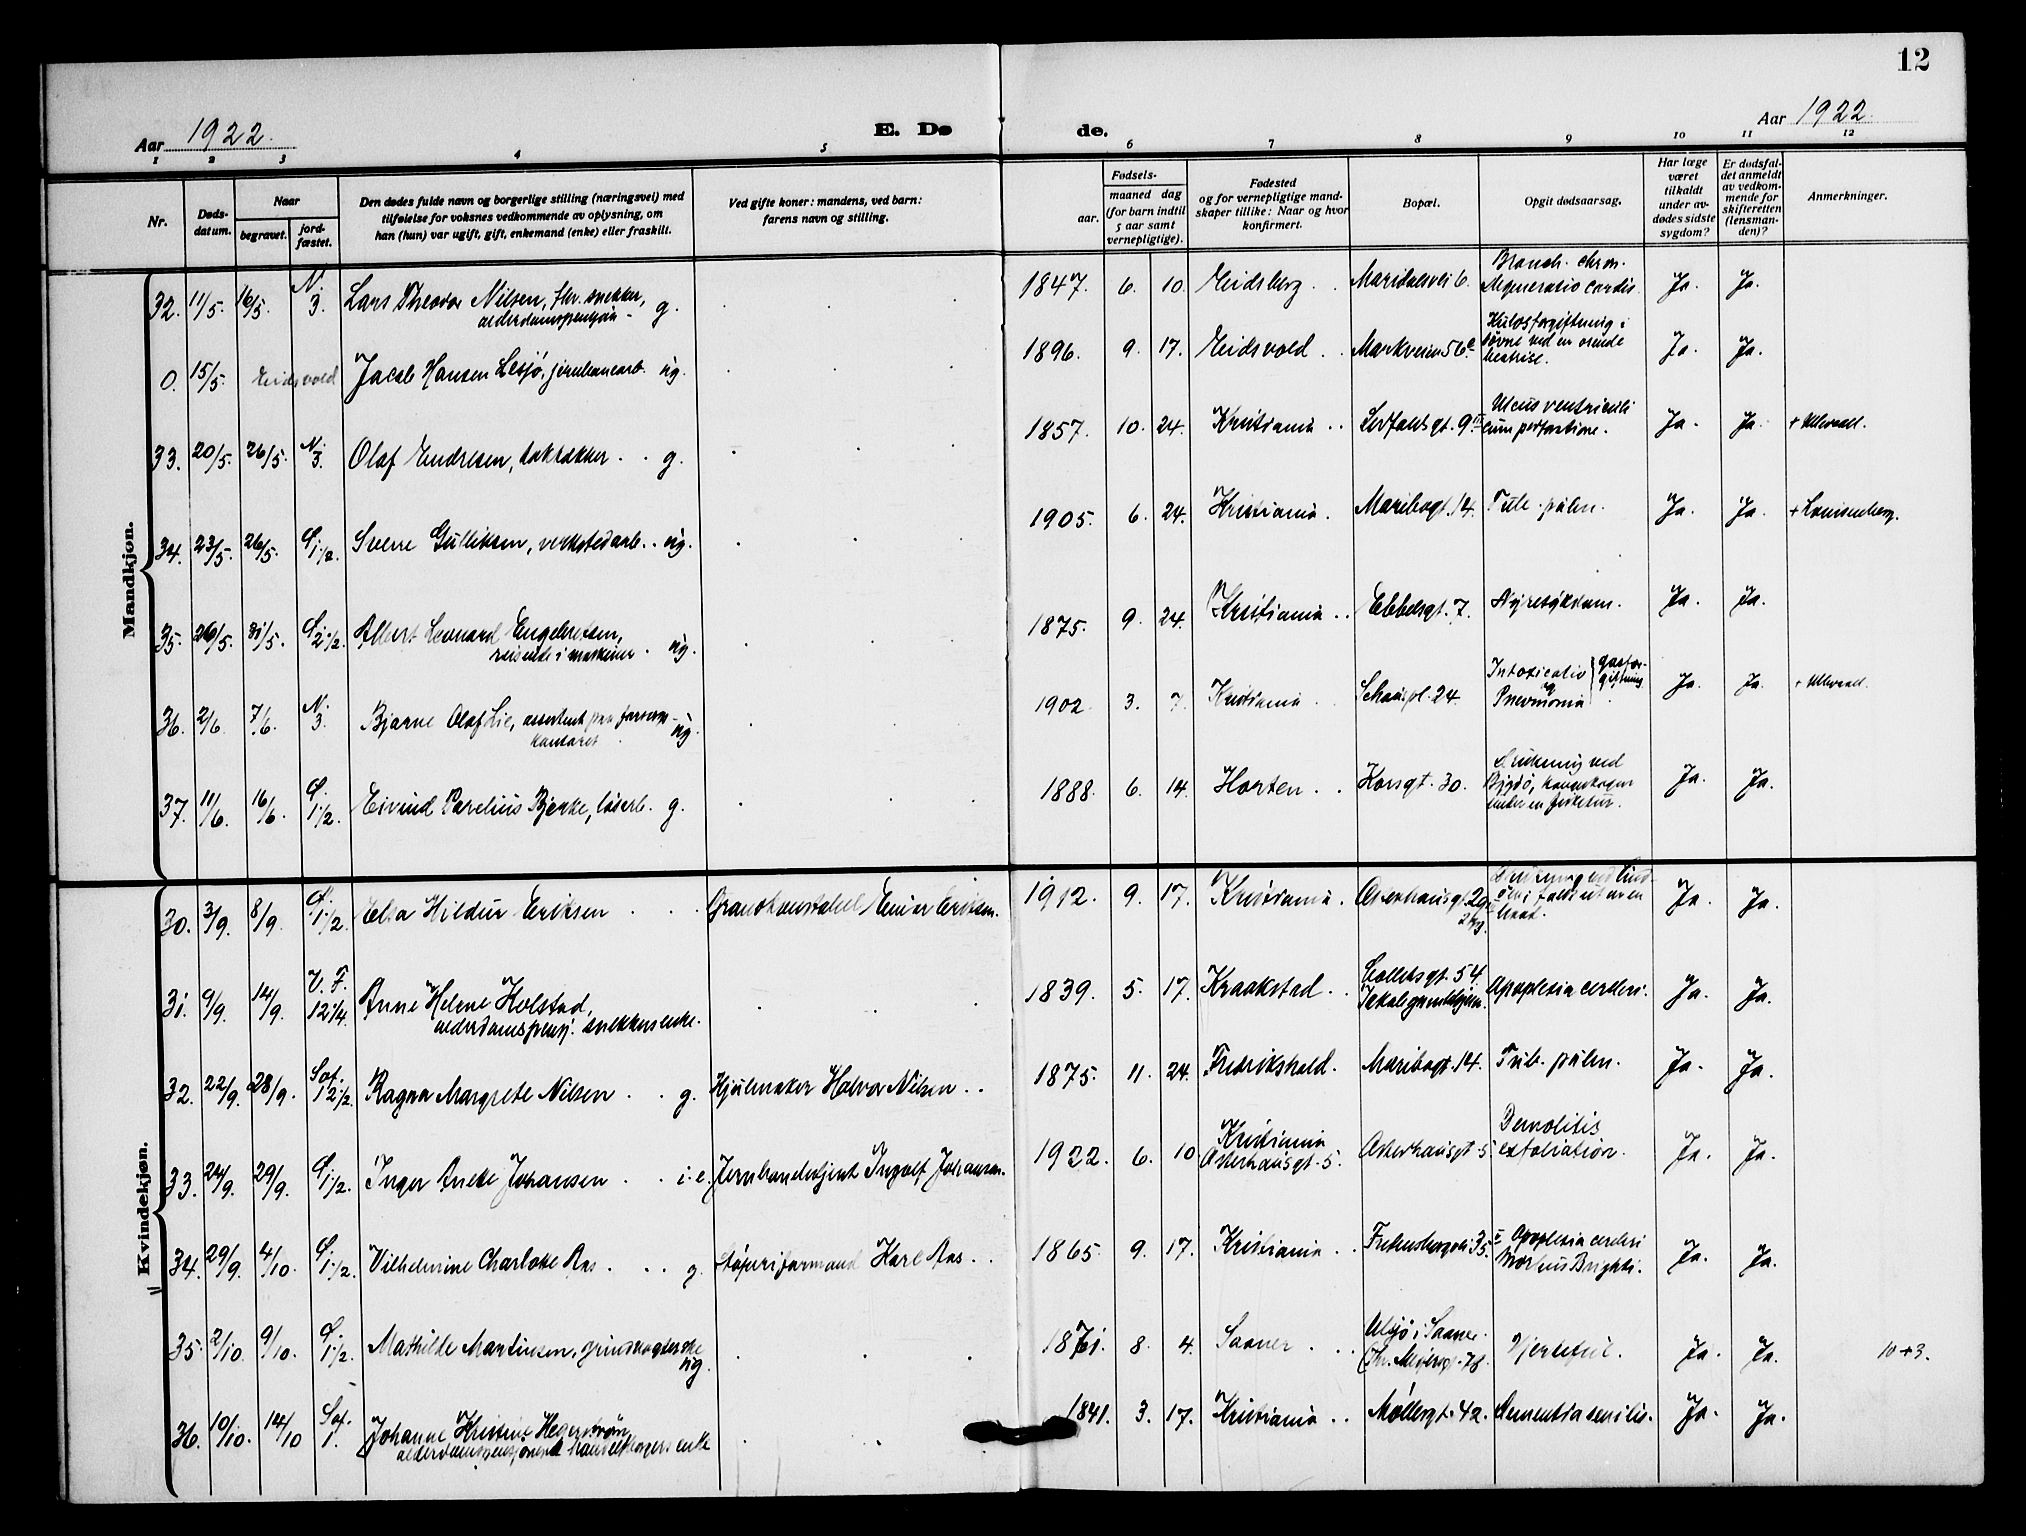 12
Aar 1922.
E. Dø
de.
Aar 1922.
1 2 3 4 5 6 7 8 9 10 11 12
Nr.
Døds-
datum.
Naar
begravet.
jord-
fæstet.
Den dødes fulde navn og borgerlige stilling (næringsvei) med
tilføielse for voksnes vedkommende av oplysning, om
han (hun) var ugift, gift, enkemand (enke) eller fraskilt.
Ved gifte koner: mandens, ved barn:
farens navn og stilling.
Fødsels-
aar.
maaned dag
(for barn indtil
5 aar samt
vernepligtige).
Fødested
og for vernepligtige mand-
skaper tillike: Naar og hvor
konfirmert.
Bopæl.
Opgit dødsaarsag.
Har læge
været
tilkaldt
under av-
dødes sidste
sygdom?
Er dødsfal-
det anmeldt
av vedkom-
mende for
skifteretten
(lensman-
den)?
Anmerkninger.
Mandkjøn.
32. 11/5. 16/5. N. 3. Lars Theodor Nilsen, fhv. snekker, g. 1847. 6. 10. Eidsberg Maridalsvei 6. Bronch. chron. Ja. Ja.
alderdomspensjon
Degeneratio cordis.
0. 15/5. Eidsvold Jacob Hansen Lesjø, jernbanearb. ug. 1896. 9. 17. Eidsvold Markveien 56 Kulosforgiftning i Ja. Ja.
søvne ved en osende
33. 20/5. 26/5. N. 3. Olaf Endresen, taktækker g. 1857. 10. 24. Kristiania 9 Ulcus ventriculi Ja. Ja. + Ullevaal.
cum perforatione.
34. 23/5. 26/5. S. 1 1/2. Sverre Gulliksen, verkstedarb. ug. 1905. 6. 24. Kristiania Maribogt. 14. Tub. pulm. Ja. Ja. + Lovisenberg.
35. 26/5. 31/5. S. 2 1/2. Albert Leonard Engebretsen, 1875. 9. 24. Kristiania Ebbelsgt. 7. Nyresykdom. Ja. Ja.
reisende i maskiner ug.
36. 2/6. 7/6. N. 3. Bjarne Olaf Lie, assistent paa ug. 1902 3. 7. Kristiania Schouspl. 24. Intoxicatio gasfor- Ja. Ja. + Ullevaal.
kontoret
giftning
Pneumonia
37. 11/6. 16/6. S. 1 1/2. Eivind Parelius Bjerke, løsarb. g. 1888. 6. 14. Horten Korsgt. 30. Drukning ved Ja. Ja.
Bygdø,
under en fisketur.
Kvindekjøn.
30. 3/9. 8/9. S. 1 1/2. Elsa Hildur Eriksen Brandkonstabel Einar Eriksen. 1912. 9. 17. Kristiania. Osterhausgt. Ja. Ja.
31. 9/9. 14/9. V. F. 12 1/4. Anne Helene Holstad, 1839. 5. 17. Kraakstad Colletsgt. 54 Apoplexia cerebri. Ja. Ja.
alderdomspensj. snekkerenke.
32. 22/9. 28/9. Sof. 12 1/2. Ragna Margrete Nilsen g. Hjulmaker Halvor Nilsen 1875. 11. 24. Fredrikshald. Maribogt. 14. Tub. pulm. Ja. Ja.
33. 24/9. 29/9. S. 1 1/2. Inger Anette Johansen i. e. Ingolf Johansen. 1922. 6. 10 Kristiania Osterhausgt 5 Ja. Ja.
Osterhausgt. 5.
exfoliation.
34. 29/9. 4/10. S. 1 1/2. Vilhelmine Charlotte Aas g. Støperiformand Karl Aas 1865. 9. 17. Kristiania Fredensborgvei 35. Apoplexia cerebri Ja. Ja.
Morbus Brighti.
35. 2/10. 9/10. S. 1 1/2. Mathilde Martinsen, ug. 1871. 8. 4. Saaner i Saaner. Hjertefeil. Ja. Ja. 10 + 3.
Chr. Meyersgt. 78.
36. 10/10. 14/10 Sof. 1. Johanne Kristine Hegerstrøm, 1841. 3. 17. Kristiania Møllergt. 42. Dementia senilis. Ja. Ja.